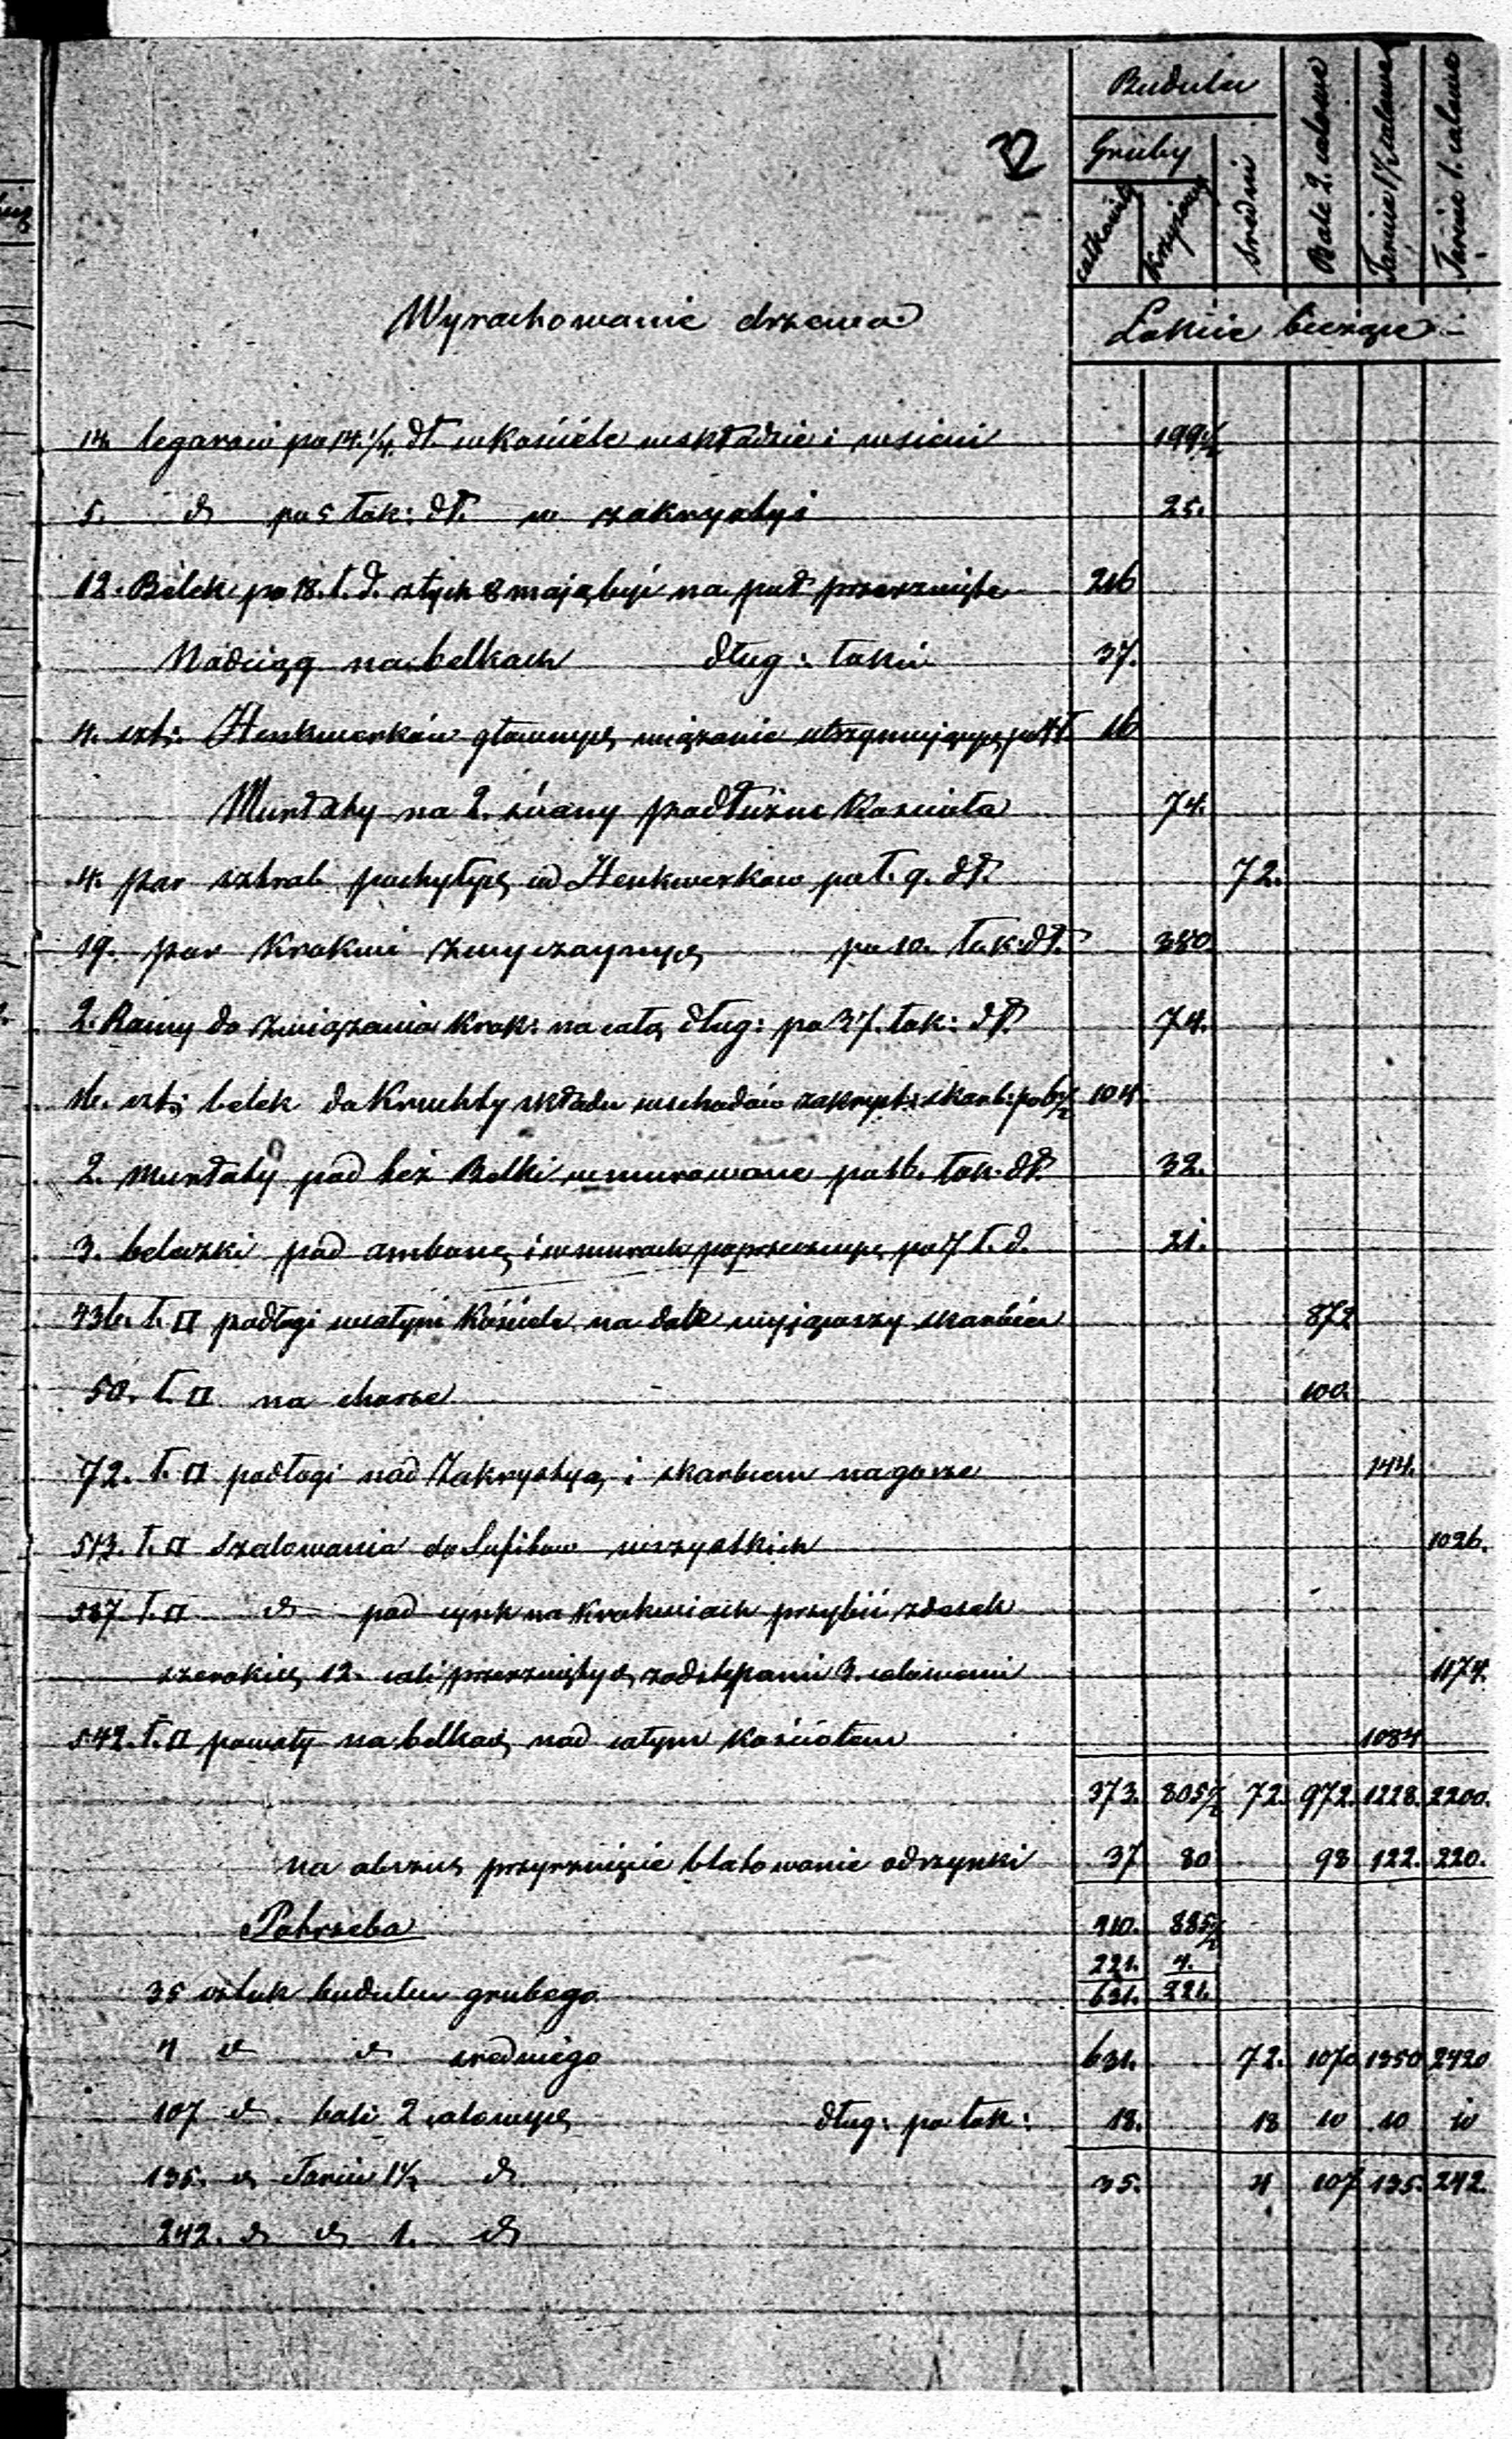 Budulcu
32
Gruby
całkowity
krzyżowy
średni
Bale 2. calowe
Tarcice 1½ calowe
Tarcice 1. calowe
Wyrachowanie drzewa
Łokcie bieżące
14. legarów po 14.¼. dł. w kościele w składzie i w sieni 199½
5. d po 5 łok: dł. w zakrystyi 25.
12. Belek po 18. ł. d. z tych 8 mają być na pół przerznięte 216
Nadciąg na belkach dług: łokci 37.
4. szt: Henkwerków głownych wiązanie utrzymujących po 4 ł. 16
Murłaty na 2. ściany podłużne Kościoła 74.
4. par sztrab pochyłych od Henkwerkow po ł. 9. dł. 72.
19. par Krokwi zwyczaynych po 10. łok: dł. 380.
2. Ramy do związania Krok: na całą dług: po 37. łok: dł. 74.
16. szt: belek do Kruchty składu wschodów zakryst: skarb: po 6½ 104
2. Murłaty pod też Belki wmurowane po 16. łok: dł. 32.
3. beleczki pod ambonę i w murach poprzecznych po 7 ł. d. 21.
436. ł. □ podłogi w całym Kościele na dole wyjąwszy skarbiec 872
50. ł. □ na chorze 100.
72. ł. □ podłogi nad Zakrystyą i skarbcem na gorze 144.
513. ł. □ Szalowania do Sufitow wszystkich 1026.
587. ł. □ d pod cynk na Krokwiach przybić z desek
szerokich 12. cali przerzniętych z odstępami 3. calowemi 1174.
542. ł. □ powały na belkach nad całym Kościołem 1084
373. 805½ 72. 972. 1228. 2200.
na obrzus przyrznięcie blatowanie odrzynki 37 80 98 122. 220.
Potrzeba 410. 885½
221. 4.
35 sztuk budulcu grubego 631. 221.
4 d d sredniego 631. 72. 1070 1350 2420
107 d. bali 2 calowych dług: po łok: 18. 18 10 10 10
135. d Tarcic 1½ d 35. 4 107 135. 242.
242. d d 1. d